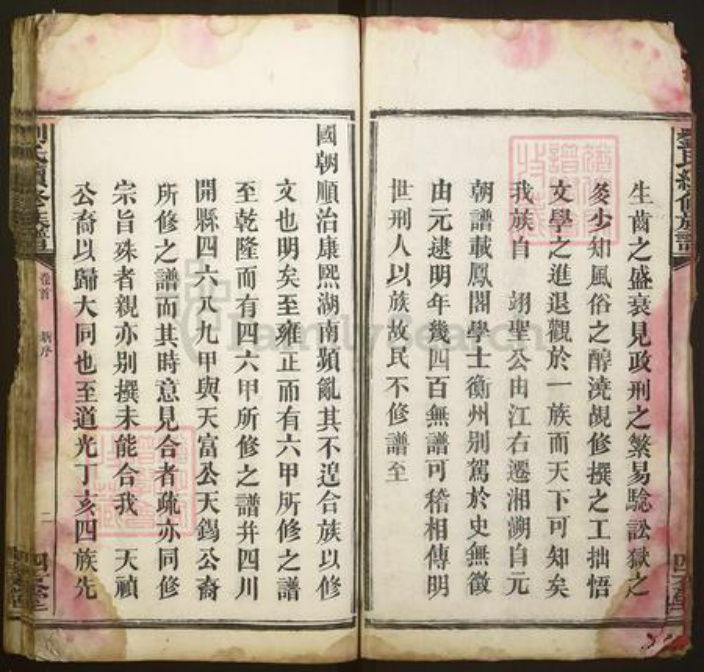 生齒之盛衰見政刑之繁易驗訟獄之
多少知風俗之醇澆覘修撰之工拙悟
文學之進退觀於一族而天下可知矣
我族自 翊聖公由江右遷湘溯自元
朝譜載鳳閣學士衡州別駕於史無徵
由元逮明年幾四百無譜可稽相傳明
世刑人以族故民不修譜至
國朝順治康熙湖南頻亂其不遑合族以修
文也明矣至雍正而有六甲所修之譜
至乾隆而有四六甲所修之譜并四川
開縣四六八九甲與天富公天錫公裔
所修之譜而其時意見合者疏亦同修
宗旨殊者親亦別撰未能合我 天禎
公裔以歸大同也至道光丁亥四族先
劉氏續修族譜
卷首 新序
二
FamilySearch